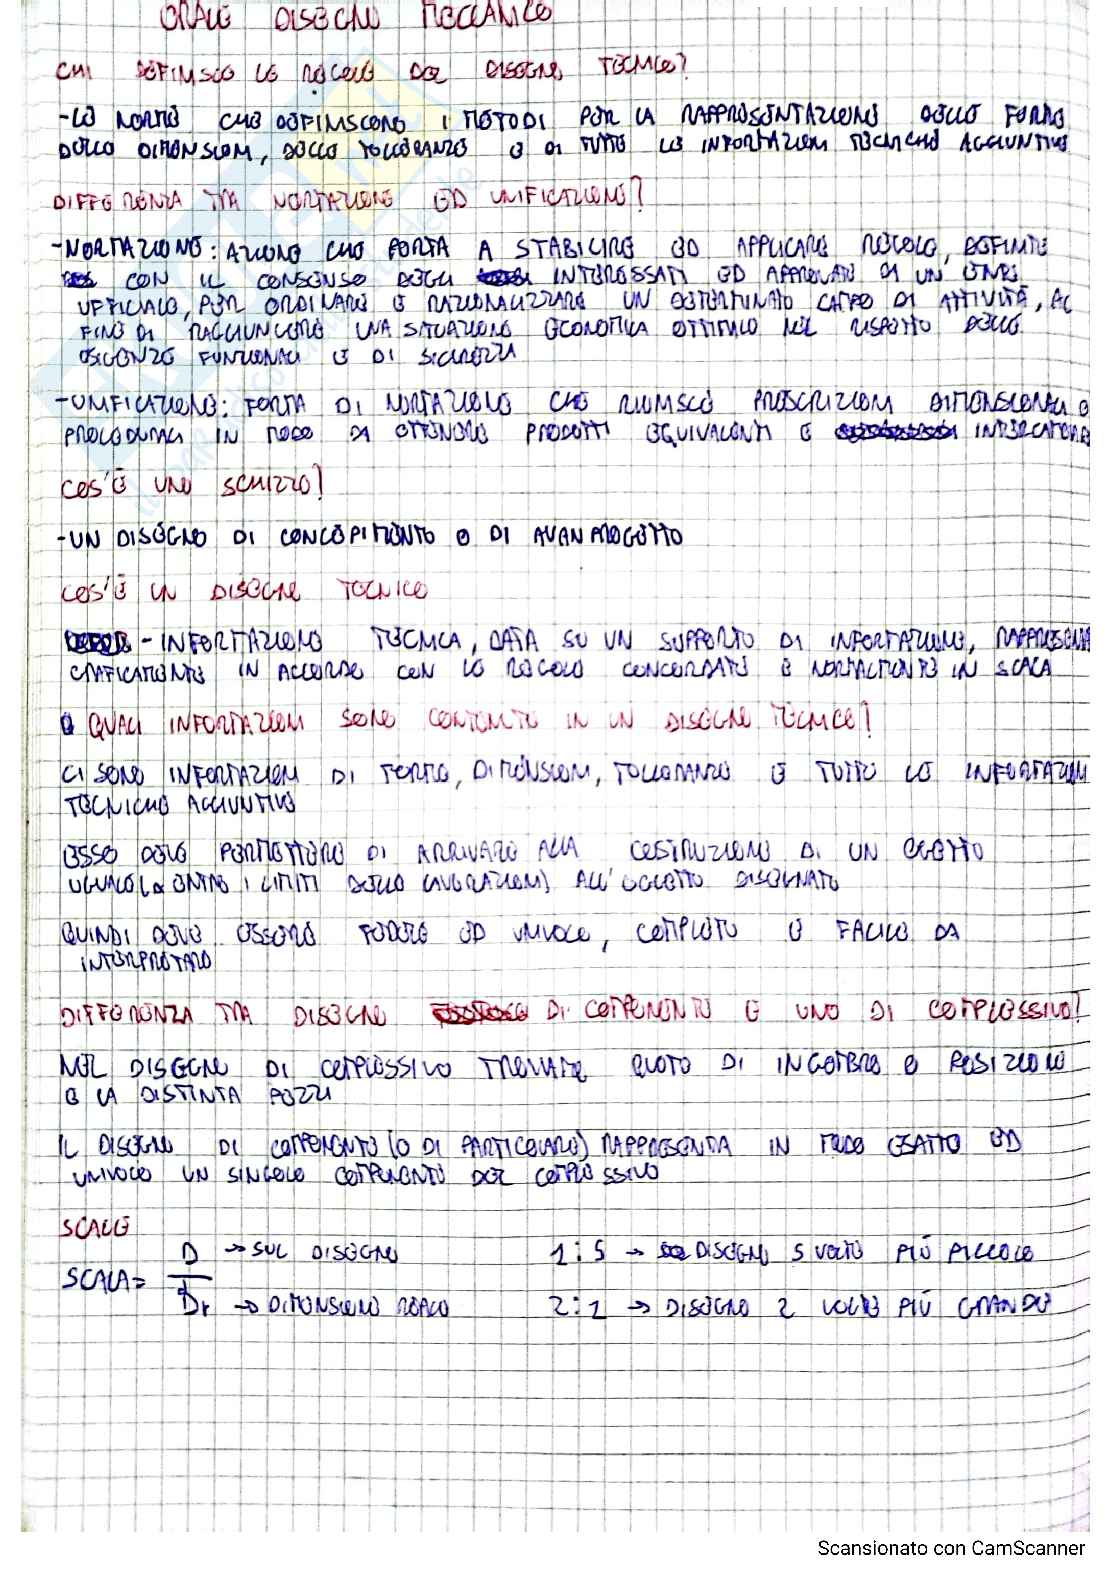 ORALE DISEGNO MECCANICO
CHI DEFINISCE LE REGOLE DEL DISEGNO TECNICO?
-LE NORME CHE DEFINISCONO I METODI PER LA RAPPRESENTAZIONE DELLE FORME
DELLE DIMENSIONI, DELLE TOLLERANZE E DI TUTTE LE INFORMAZIONI TECNICHE AGGIUNTIVE
DIFFERENZA TRA NORMAZIONE ED UNIFICAZIONE?
-NORMAZIONE: AZIONE CHE PORTA A STABILIRE ED APPLICARE REGOLE, DEFINITE
CON IL CONSENSO DEGLI INTERESSATI ED APPROVATE DA UN ENTE
UFFICIALE, PER ORDINARE E RAZIONALIZZARE UN DETERMINATO CAMPO DI ATTIVITÀ, AL
FINE DI RAGGIUNGERE UNA SITUAZIONE ECONOMICA OTTIMALE NEL RISPETTO DELLE
ESIGENZE FUNZIONALI E DI SICUREZZA
-UNIFICAZIONE: FORMA DI NORMAZIONE CHE RIUNISCE PRESCRIZIONI DIMENSIONALI E
PROCEDURALI IN MODO DA OTTENERE PRODOTTI EQUIVALENTI E INTERCAMB
COS'È UNO SCHIZZO?
-UN DISEGNO DI CONCEPIMENTO O DI AVANPROGETTO
COS'È UN DISEGNO TECNICO
-INFORMAZIONE TECNICA, DATA SU UN SUPPORTO DI INFORMAZIONE, RAPPRESENTA
GRAFICAMENTE IN ACCORDO CON LE REGOLE CONCORDATE E NORMALMENTE IN SCALA
QUALI INFORMAZIONI SONO CONTENUTE IN UN DISEGNO TECNICO?
CI SONO INFORMAZIONI DI FORMA, DIMENSIONI, TOLLERANZE E TUTTE LE INFORMAZIONI
TECNICHE AGGIUNTIVE
ESSO DEVE PERMETTERE DI ARRIVARE ALLA COSTRUZIONE DI UN OGGETTO
UGUALE (ENTRO I LIMITI DELLE LAVORAZIONI) ALL'OGGETTO DISEGNATO
QUINDI DEVE ESSERE FEDELE ED UNIVOCO, COMPLETO E FACILE DA
INTERPRETARE
DIFFERENZA TRA DISEGNO DI COMPONENTE E UNO DI COMPLESSIVO?
NEL DISEGNO DI COMPLESSIVO TROVIAMO QUOTE DI INGOMBRO E POSIZIONE
E LA DISTINTA PEZZI
IL DISEGNO DI COMPONENTE (O DI PARTICOLARE) RAPPRESENTA IN MODO ESATTO ED
UNIVOCO UN SINGOLO COMPONENTE DEL COMPLESSIVO
SCALE
D → SUL DISEGNO 1:5 → DISEGNO 5 VOLTE PIÙ PICCOLO
SCALA=
Dr → DIMENSIONE REALE 2:1 → DISEGNO 2 VOLTE PIÙ GRANDE
Scansionato con CamScanner